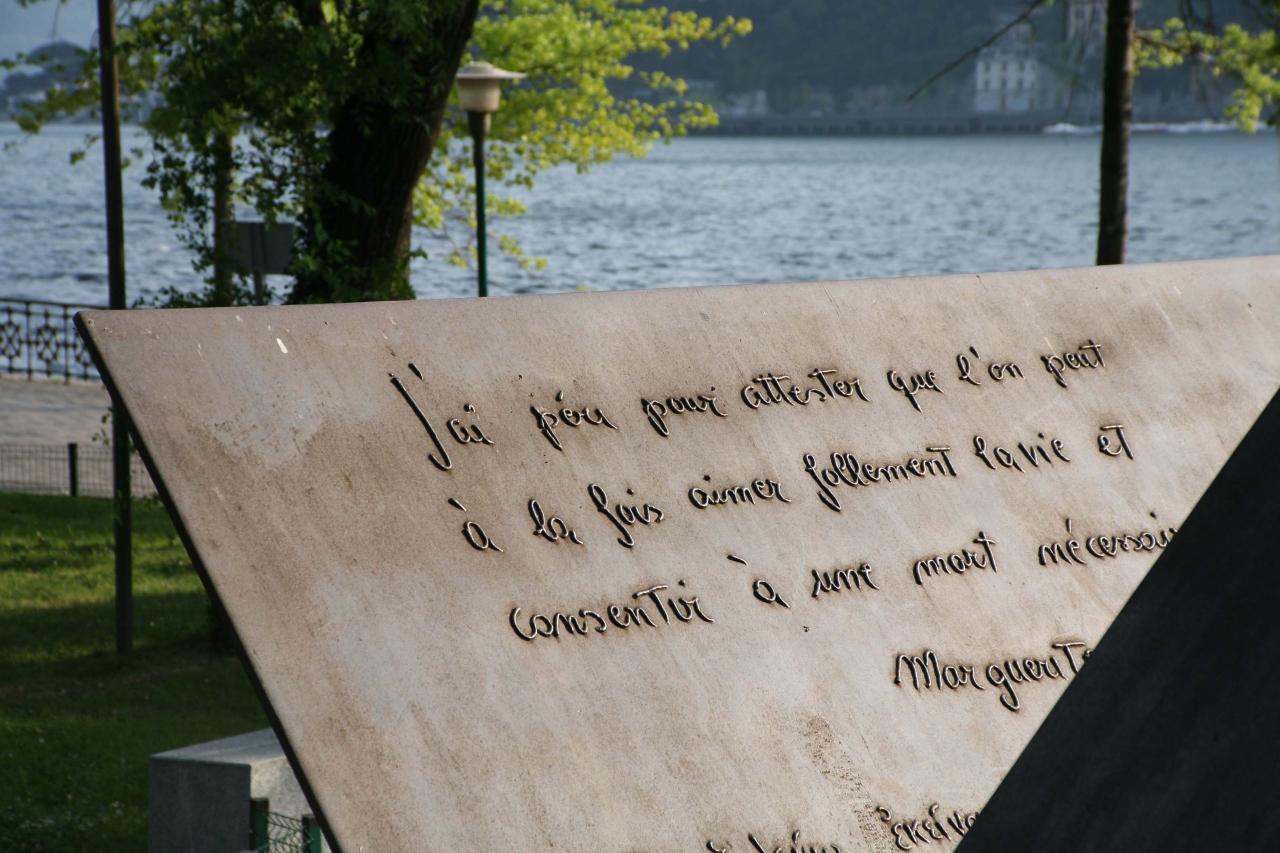 J'ai péu pour attester que l'on peut
à la fois aimer follement la vie et
consentir à une mort nécessair
Marguerite